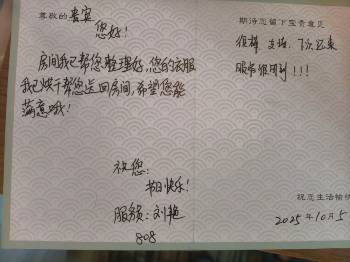 尊敬的贵宾
您好!
房间我已帮您整理好,您的衣服
我已烘干帮您送回房间,希望您能
满意哦!
祝您:
节日快乐!
服务员:刘艳
808
期待您留下宝贵意见
很棒,支持,下次还来
服务很周到!!!
祝您生活愉快
2025年10月5